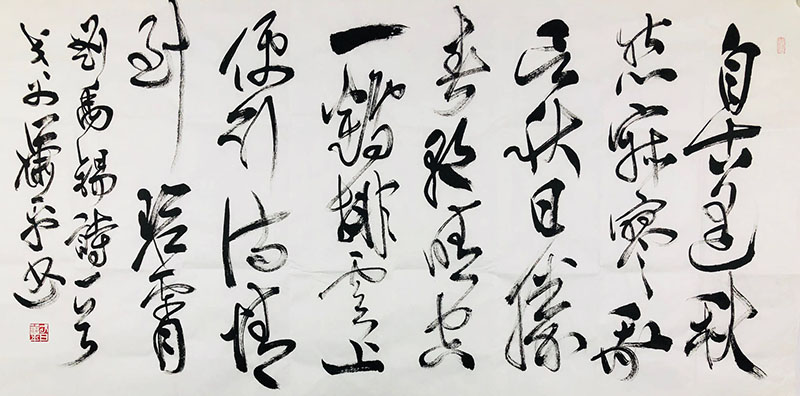 自古逢秋
悲寂寥我
言秋日勝
春朝晴空
一鶴排雲上
便引詩情
到碧霄
劉禹錫詩一首
書